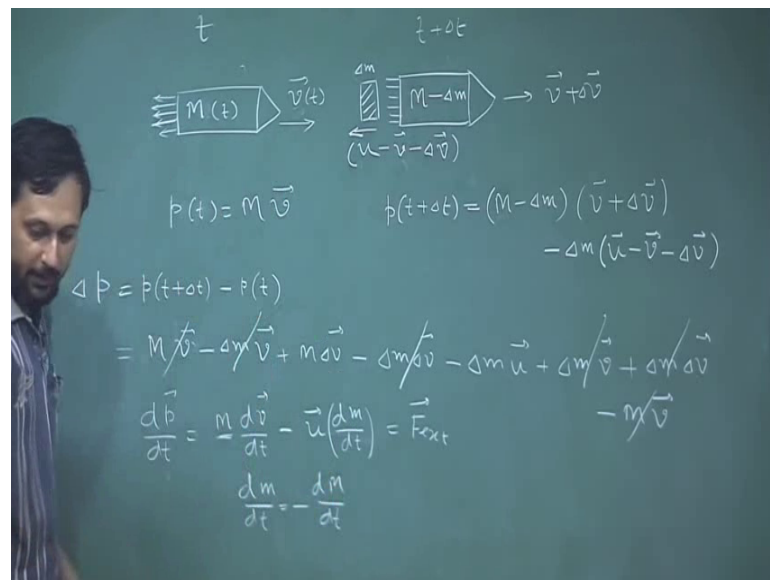 t t+Δt
Δm
M(t) v⃗(t) M-Δm v⃗+Δv⃗
(u⃗-v⃗-Δv⃗)
p(t) = M v⃗ p(t+Δt) = (M-Δm) (v⃗+Δv⃗)
-Δm(u⃗-v⃗-Δv⃗)
Δp = p(t+Δt) - p(t)
= Mv⃗ - Δmv⃗ + MΔv⃗ - ΔmΔv⃗ - Δm u⃗ + Δm v⃗ + Δm Δv⃗
- Mv⃗
dp⃗/dt = M dv⃗/dt - u⃗(dm/dt) = F⃗ext
dm/dt = - dM/dt